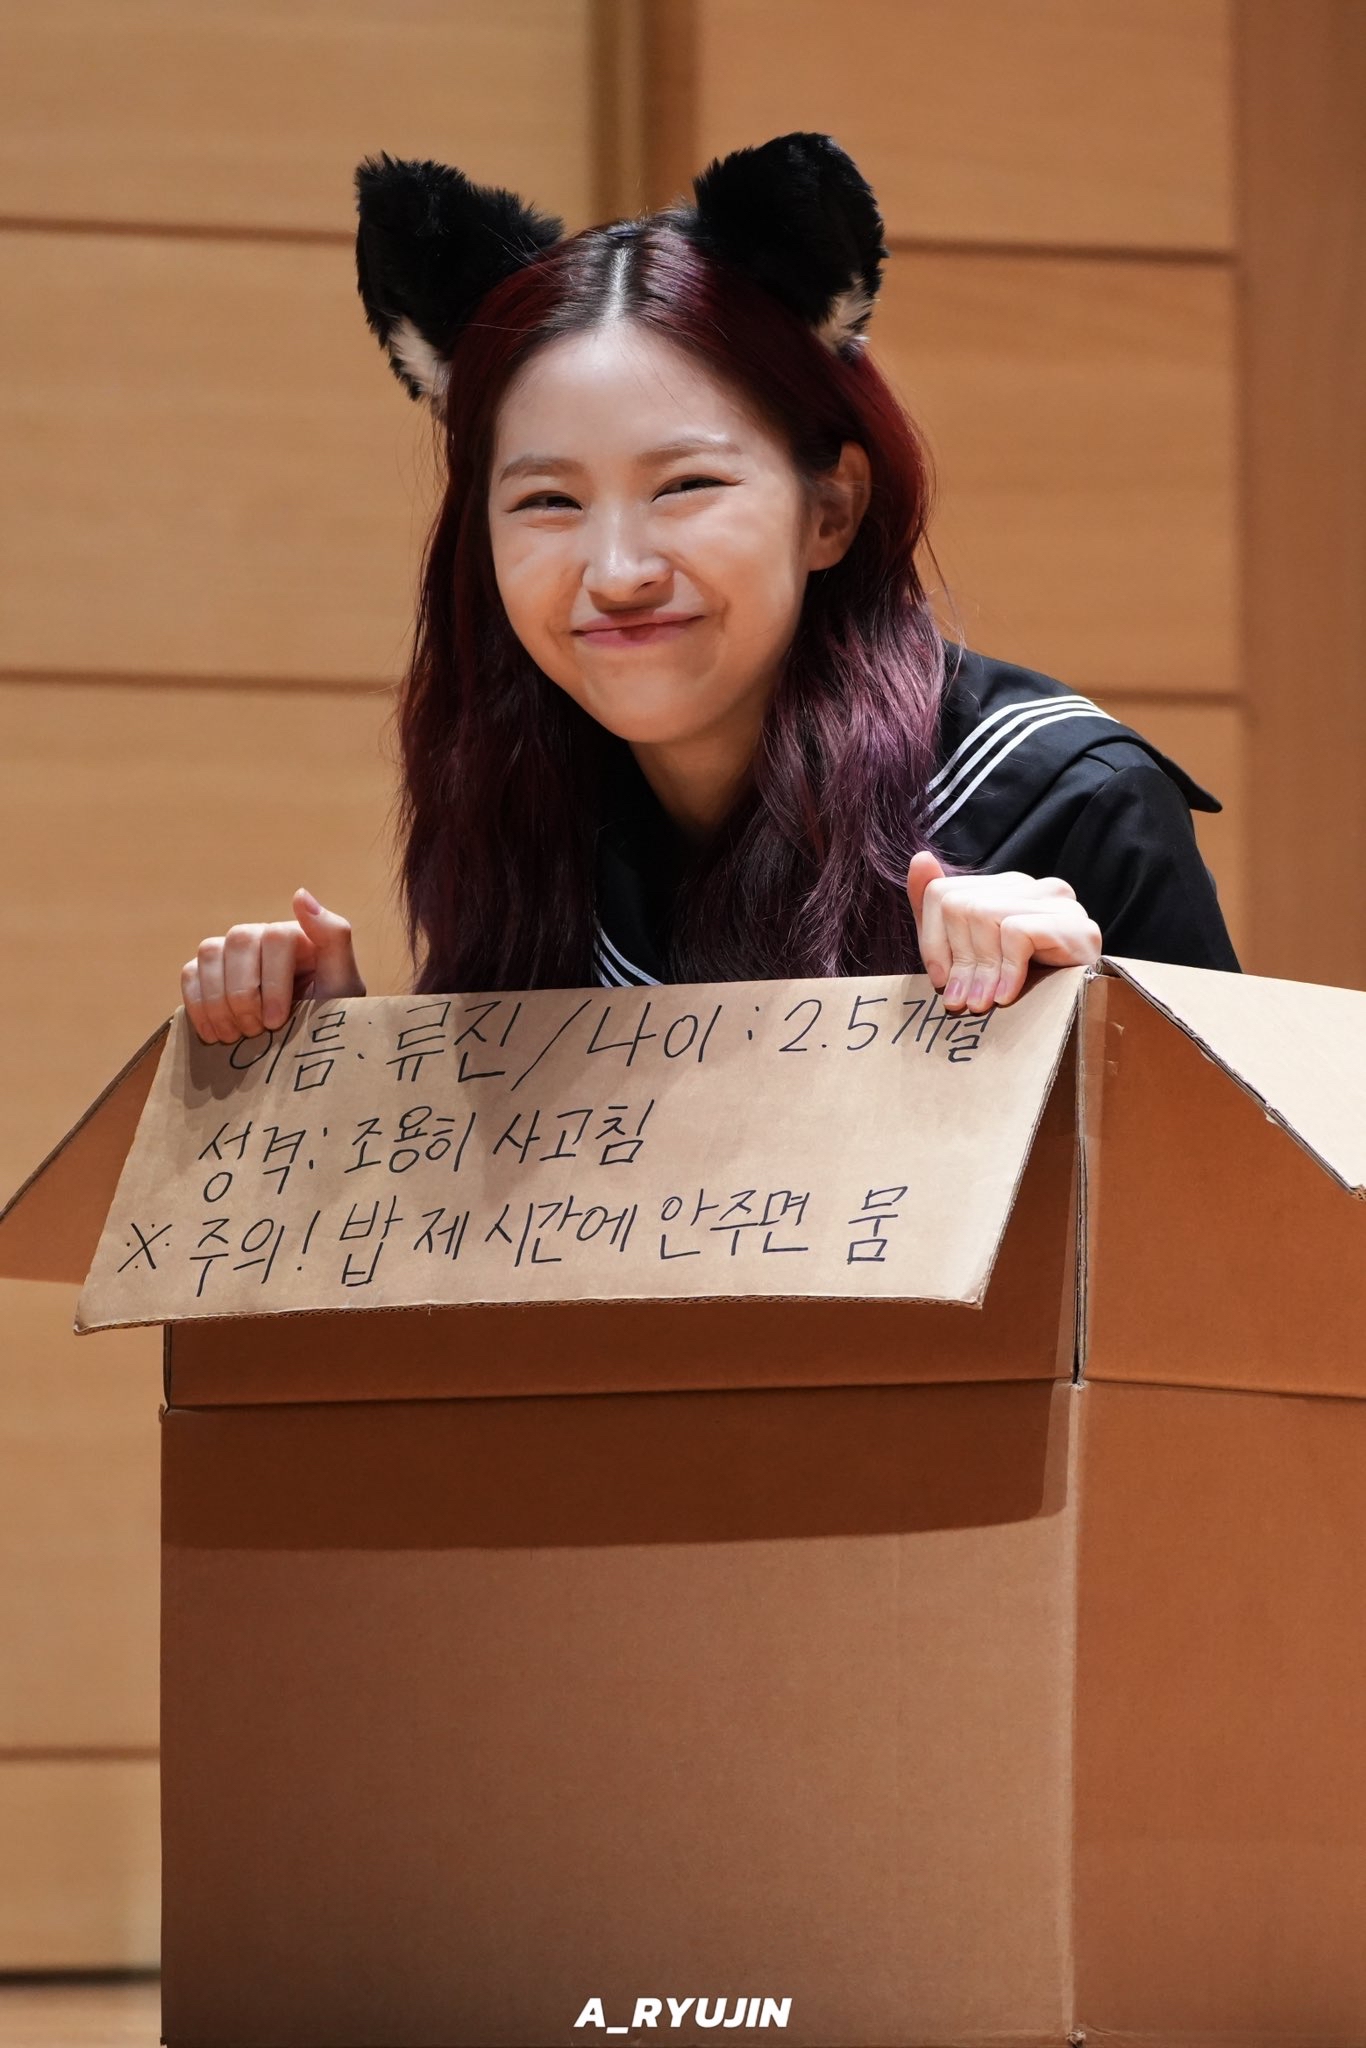 이름: 류진 / 나이 : 2.5개월
성격: 조용히 사고침
※ 주의! 밥 제 시간에 안주면 뭄
A_RYUJIN